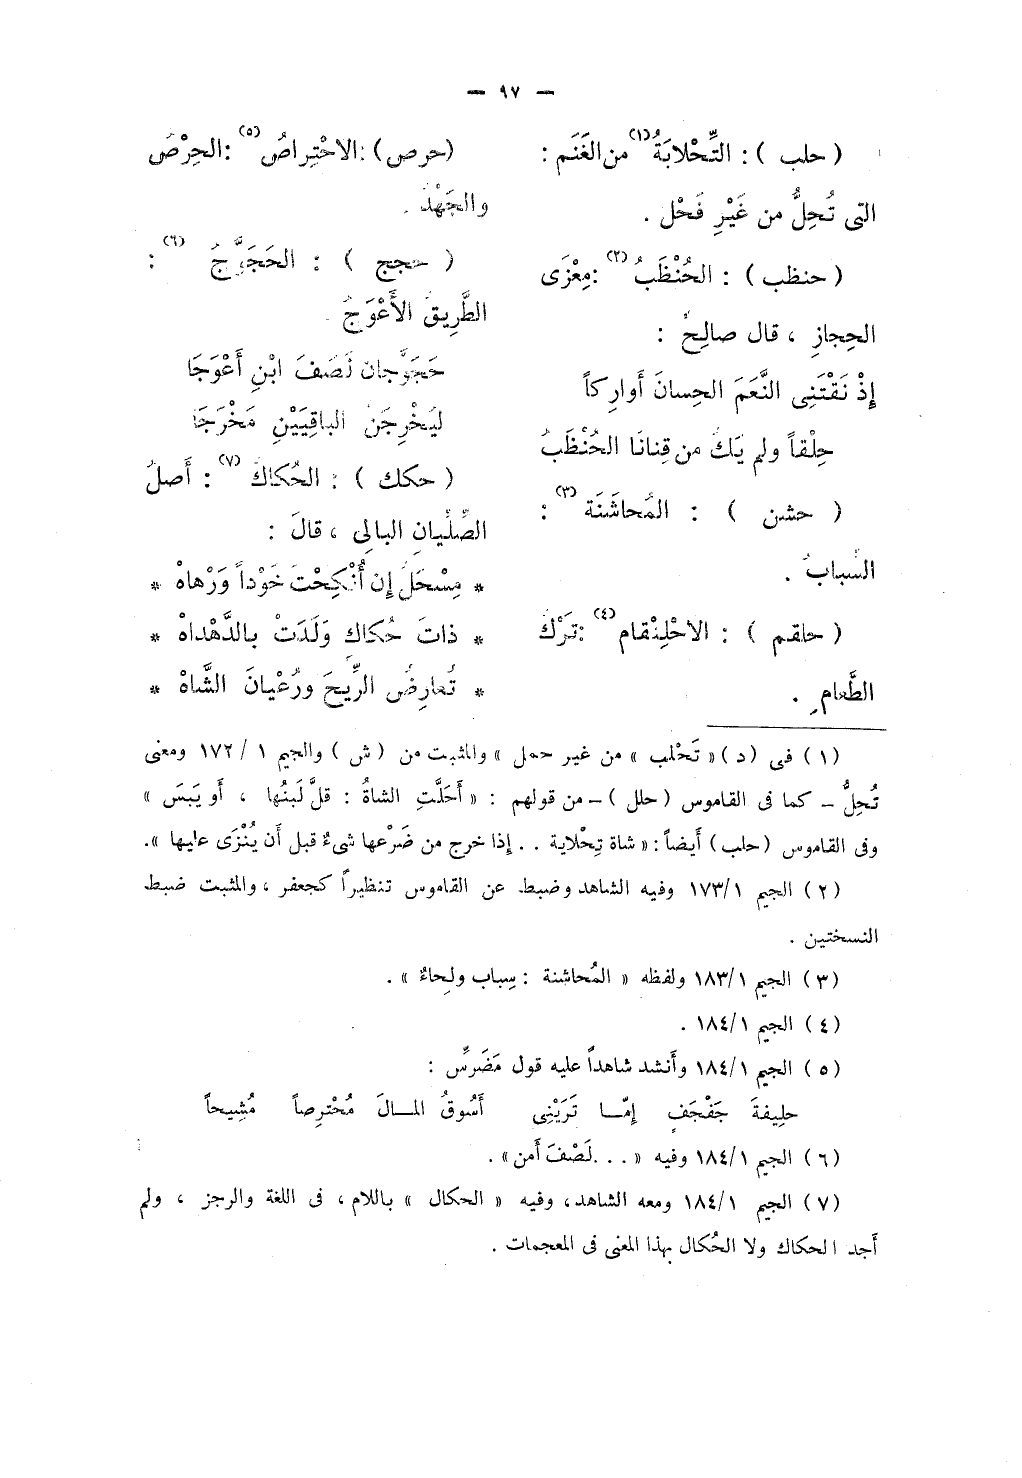 — ٩٧ —
( حلب ) : التِّحْلابَةُ (١) من الغَنَم :
التى تُحِلُّ من غَيْرِ فَحْل .
( حنظب ) : الحُنْظَبُ (٢) : مِعْزَى
الحِجازِ ، قال صالِحٌ :
إِذْ نَقْتَنِى النَّعَمَ الحِسانَ أَوارِكاً
حِلْقاً ولم يَكُ من قِنانَا الحُنْظَبُ
( حشن ) : المُحاشَنَة (٣) :
السِّبابُ .
( حلقم ) : الاحْلِنْقام (٤) : تَرْكُ
الطَّعام .
( حرص ) : الاحْتِراصُ (٥) : الحِرْصُ
والجَهْدُ .
( حجج ) : الحَجَوَّجُ (٦) :
الطَّرِيقُ الأَعْوَجُ .
حَجَوَّجان نَصَفَ ابْنِ أَعْوَجَا
لِيُخْرِجَنَّ الباقِيَيْنِ مَخْرَجَا
( حكك ) : الحُكاكُ (٧) : أَصلُ
الصِّلِّيانِ البالِى ، قالَ :
* مِسْحَلُ إِن أُنْكِحْتَ خَوْداً وَرْهاهْ *
* ذاتَ حُكاكٍ وَلَدَتْ بالدَّهْداهْ *
* تُعارِضُ الرِّيحَ ورُعْيانَ الشَّاهْ *
(١) فى (د) « تَحْلب » من غير حمل » والمثبت من (ش) والجيم ١ / ١٧٢ ومعنى
تُحِلُّ – كما فى القاموس (حلل) – من قولهم : « أَحَلَّتِ الشاةُ : قلَّ لَبنُها ، أو يَبَسَ »
وفى القاموس (حلب) أَيضاً : « شاة تِحْلابة . . إِذا خرج من ضَرْعها شىءٌ قبل أَن يُنْزَى عليها » .
(٢) الجيم ١٧٣/١ وفيه الشاهد وضبط عن القاموس تنظيراً كجعفر ، والمثبت ضبط
النسختين .
(٣) الجيم ١٨٣/١ ولفظه « المُحاشنة : سِباب ولِحاءٌ » .
(٤) الجيم ١٨٤/١ .
(٥) الجيم ١٨٤/١ وأَنشد شاهداً عليه قول مُضَرِّسٍ :
حلِيفةَ جَفْجَفٍ إِمّــا تَرَيْنِى أَسُوقُ المــالَ مُحْترِصاً مُشِيحاً
(٦) الجيم ١٨٤/١ وفيه « . . . نَصْفَ أَمن » .
(٧) الجيم ١٨٤/١ ومعه الشاهد ، وفيه « الحكال » باللام ، فى اللغة والرجز ، ولم
أَجد الحكاك ولا الحُكال بهذا المعنى فى المعجمات .